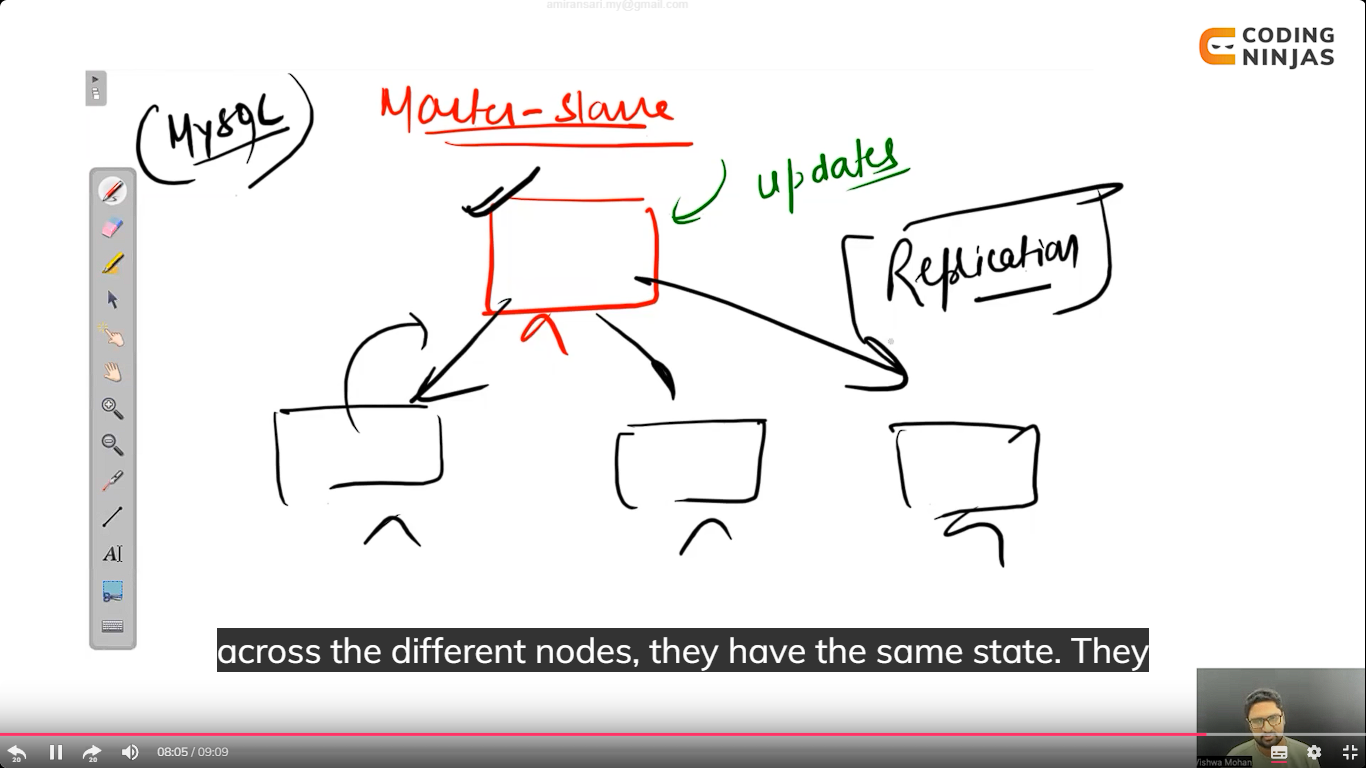 amiransari.my@gmail.com
CODING
NINJAS
(MySQL)
Master-slave
updates
Replication
AI
across the different nodes, they have the same state. They
20
20
08:05 / 09:09
Vishwa Mohan